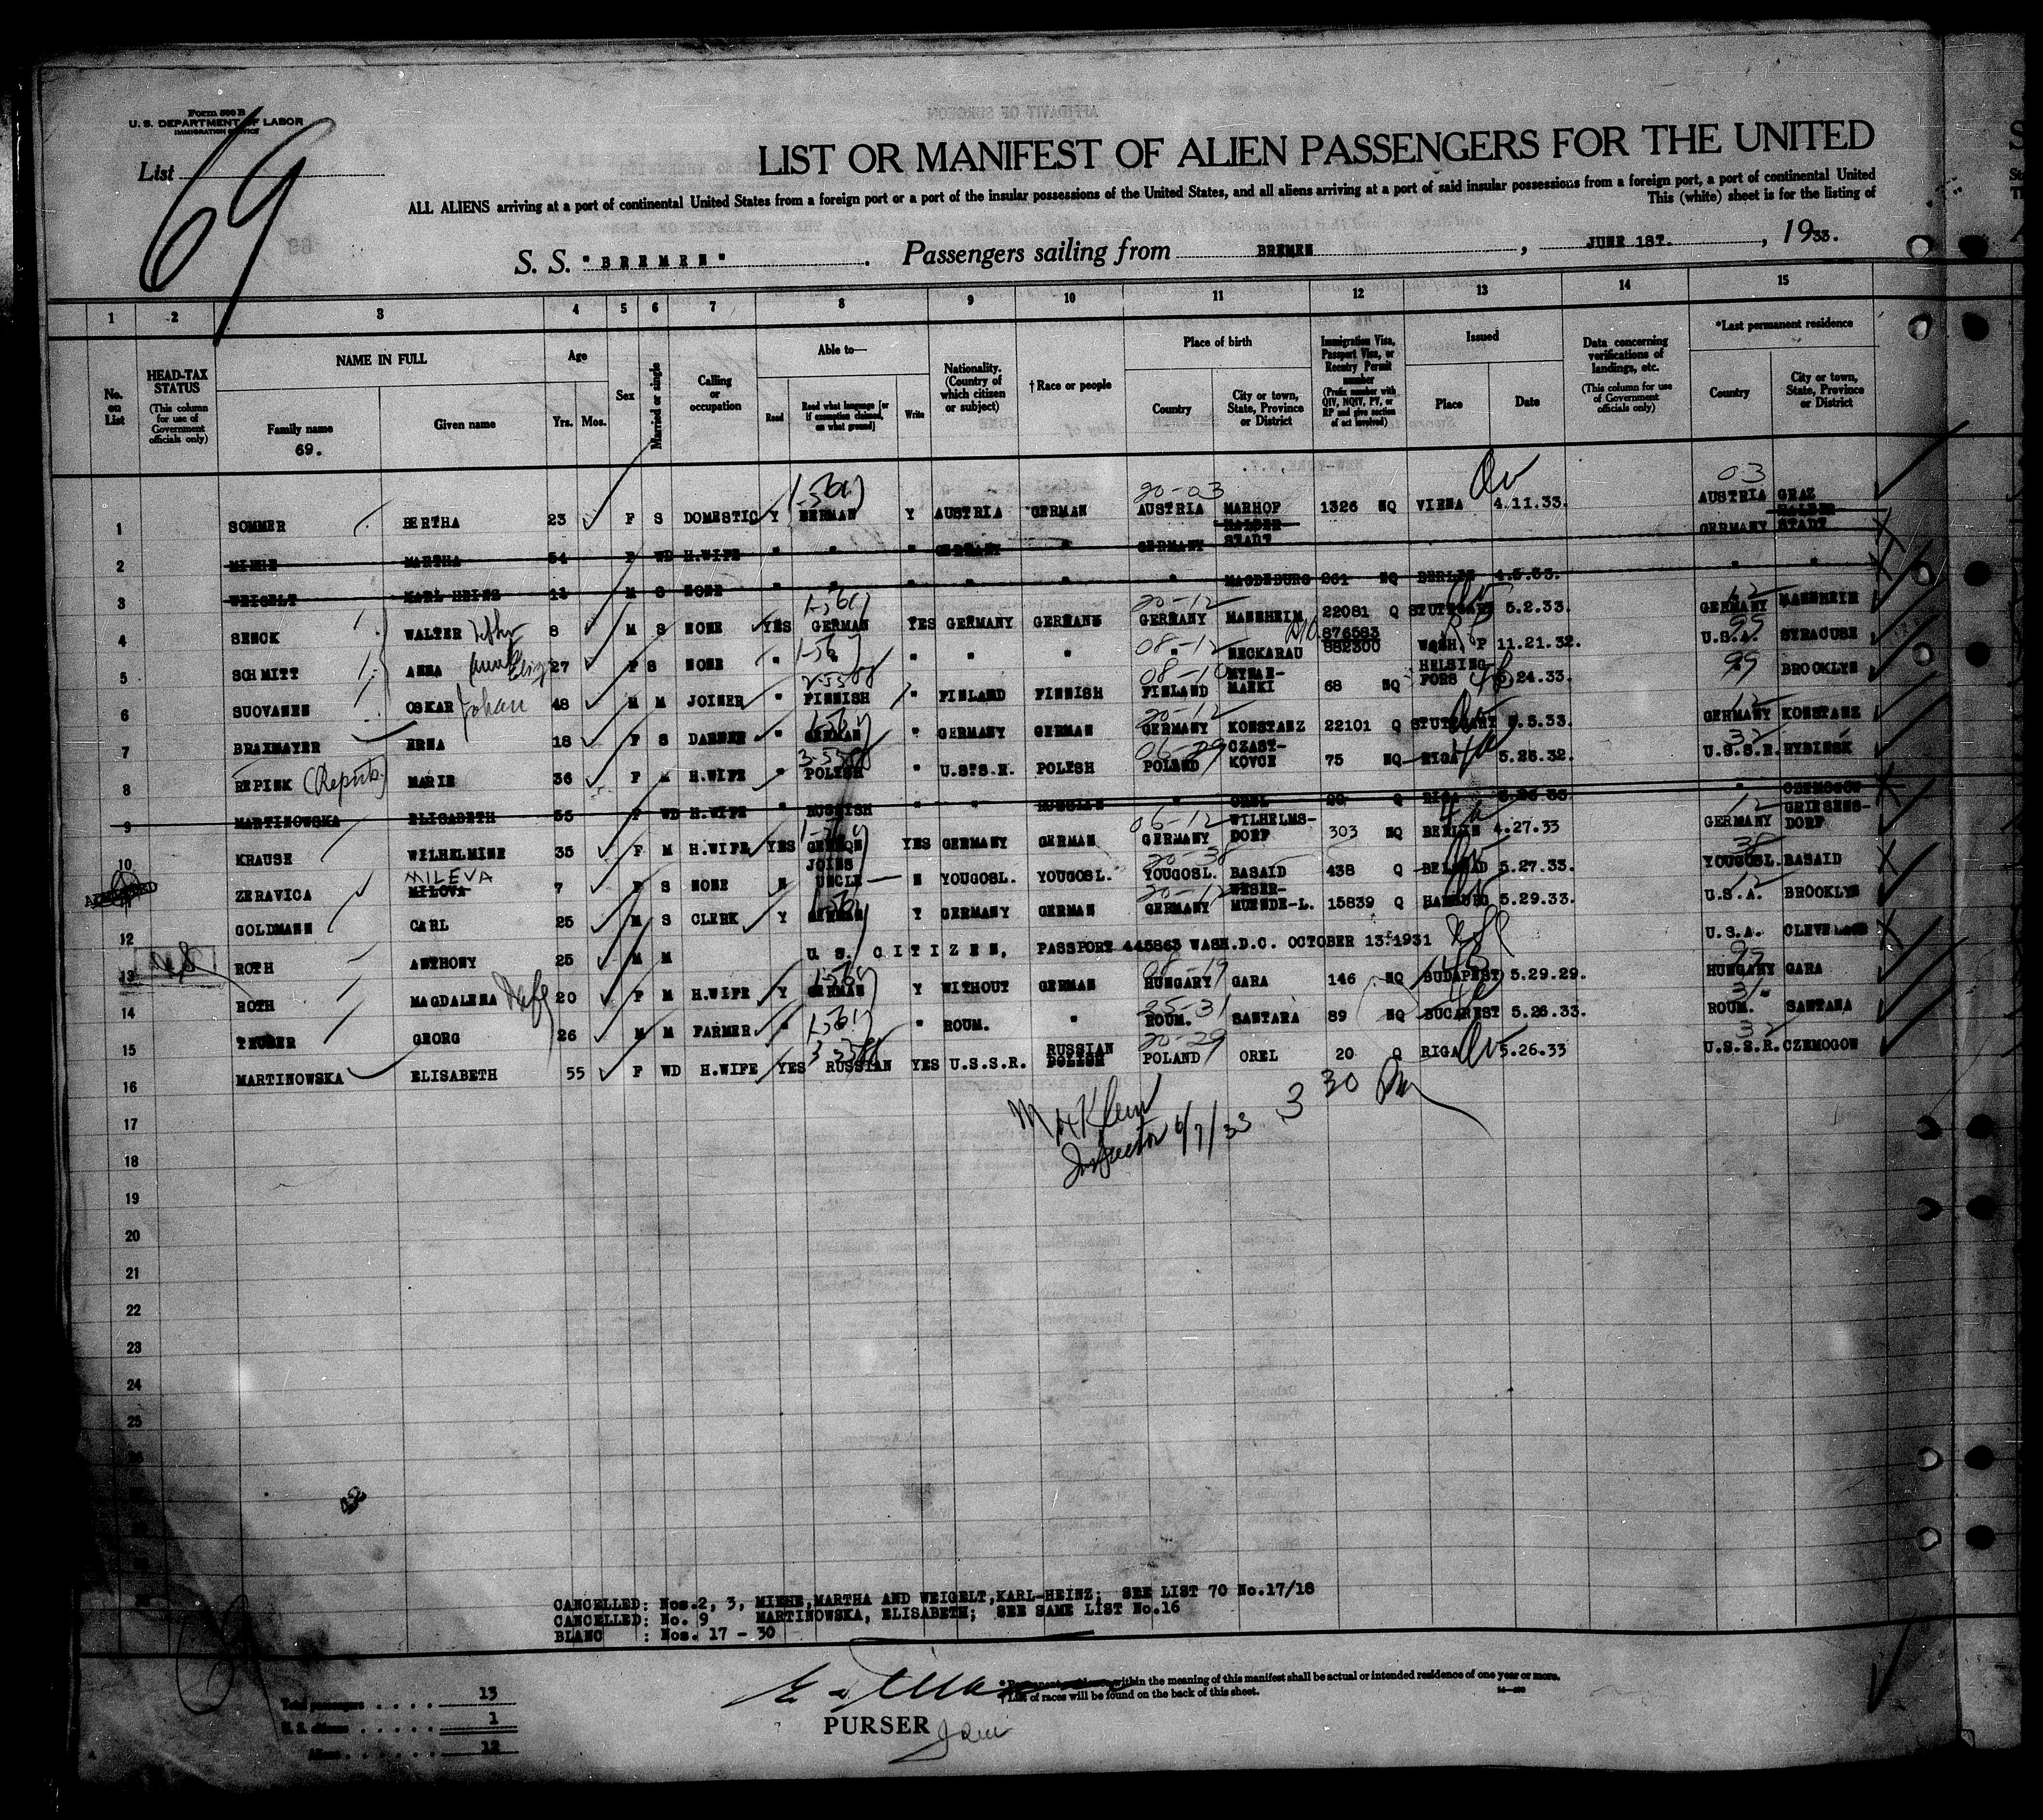 Form 500 B
U. S. DEPARTMENT OF LABOR
IMMIGRATION SERVICE
List 69
LIST OR MANIFEST OF ALIEN PASSENGERS FOR THE UNITED
ALL ALIENS arriving at a port of continental United States from a foreign port or a port of the insular possessions of the United States, and all aliens arriving at a port of said insular possessions from a foreign port, a port of continental United
This (white) sheet is for the listing of
S. S. "BREMEN". Passengers sailing from BREMEN, JUNE 1ST., 1933.
1 2 3 4 5 6 7 8 9 10 11 12 13 14 15
No. on List
HEAD-TAX STATUS (This column for use of Government officials only)
NAME IN FULL Family name 69. Given name
Age Yrs. Mos.
Sex
Married or single
Calling or occupation
Able to— Read Read what language [or if exemption claimed, on what ground] Write
Nationality. (Country of which citizen or subject)
†Race or people
Place of birth Country City or town, State, Province or District
Immigration Visa, Passport Visa, or Reentry Permit number (Prefix number with QIV, NQIV, PV, or RP and give section of act involved)
Issued Place Date
Data concerning verifications of landings, etc. (This column for use of Government officials only)
*Last permanent residence Country City or town, State, Province or District
1 SOMMER BERTHA 23 F S DOMESTIC Y GERMAN Y AUSTRIA GERMAN 20-03 AUSTRIA MARHOF 1326 NQ VIENA 4.11.33. 03 AUSTRIA GRAZ
2 MIEHE MARTHA 54 F WD H.WIFE " " " GERMANY " GERMANY HALBER STADT GERMANY HALBER STADT
3 WEIGELT KARL HEINZ 13 M S NONE " " " " " " MAGDEBURG 261 NQ BERLIN 4.5.33. " "
4 SENCK WALTER 8 M S NONE YES GERMAN YES GERMANY GERMANS 20-12 GERMANY MANNHEIM 22081 Q STUTTGART 5.2.33. 12 GERMANY MANNHEIM
5 SCHMITT ANNA 27 F S NONE " " " " " 08-12 " NECKARAU 876583 882300 WASH. RP 11.21.32. 99 U.S.A. SYRACUSE
6 SUOVANEN OSKAR Johan 48 M M JOINER " FINNISH " FINLAND FINNISH 08-10 FINLAND 68 NQ HELSING FORS 5.24.33. 99 " BROOKLYN
7 BRAXMAYER ERNA 18 F S " GERMAN " GERMANY GERMAN 20-12 GERMANY KONSTANZ 22101 Q STUTTGART 5.5.33. 12 GERMANY KONSTANZ
8 REPINK MARIE 36 F M H.WIFE " POLISH " U.S.S.R. POLISH 06-29 POLAND CZAST-KOVCE 75 NQ RIGA 5.26.32. 32 U.S.S.R. RYBINSK
9 MARTINOWSKA ELISABETH 55 F WD H.WIFE " RUSSISH " " RUSSIAN " OREL 20 Q RIGA 5.26.33 " CZEMOGOW
10 KRAUSE WILHELMINE 35 F M H.WIFE YES GERMAN YES GERMANY GERMAN 06-12 GERMANY WILHELMS-DORF 303 NQ BERLIN 4.27.33 12 GERMANY GRIESENS-DORF
ZERAVICA MILEVA MILOVA 7 F S NONE N JOINS UNCLE N YOUGOSL. YOUGOSL. 20-38 YOUGOSL. BASAID 438 Q BELGRAD 5.27.33. 38 YOUGOSL. BASAID
12 GOLDMANN CARL 25 M S CLERK Y GERMAN Y GERMANY GERMAN 20-12 GERMANY WESER-MUENDE-L. 15839 Q HAMBURG 5.29.33. 12 U.S.A. BROOKLYN
13 ROTH ANTHONY 25 M M U. S. CITIZEN, PASSPORT 445863 WASH.D.C. OCTOBER 13.1931 U.S.A. CLEVELAND
14 ROTH MAGDALENA 20 F M H.WIFE Y GERMAN Y WITHOUT GERMAN 08-19 HUNGARY GARA 146 NQ BUDAPEST 5.29.29. 99 HUNGARY GARA
15 GEORG 26 M M FARMER " " ROUM. " 25-31 ROUM. SANTANA 89 NQ BUCAREST 5.26.33. 31 ROUM. SANTANA
16 MARTINOWSKA ELISABETH 55 F WD H.WIFE YES RUSSIAN YES U.S.S.R. RUSSIAN POLISH 20-29 POLAND OREL 20 Q RIGA 5.26.33 32 U.S.S.R. CZEMOGOW
17
M H Klein 3 30 Pm
18 Inspector 6/7/33
19
20
21
22
23
24
25
CANCELLED: Nos.2, 3, MIEHE,MARTHA AND WEIGELT,KARL-HEINZ; SEE LIST 70 No.17/18
CANCELLED: No. 9 MARTINOWSKA, ELISABETH; SEE SAME LIST No.16
BLANC : Nos. 17 - 30
*Permanent residence within the meaning of this manifest shall be actual or intended residence of one year or more.
†List of races will be found on the back of this sheet.
PURSER
Total passengers . . . . 13
U. S. citizens . . . . . 1
Aliens . . . . . . 12